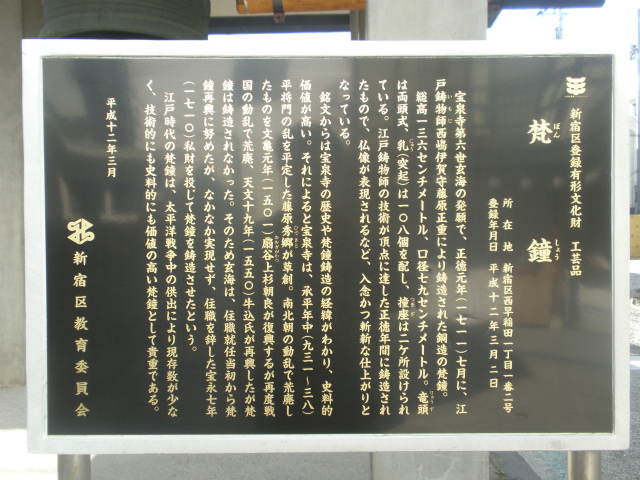 新宿区登録有形文化財　工芸品
梵鐘
ぼん　しょう
所在地　新宿区西早稲田一丁目一番二号
登録年月日　平成十二年三月二日
宝泉寺第六世玄海の発願で、正徳元年（一七一一）七月に、江
戸鋳物師西嶋伊賀守藤原正重により鋳造された銅造の梵鐘。
総高一三六センチメートル、口径七九センチメートル。竜頭
は両頭式、乳（突起）は一〇八個を配し、撞座は二ケ所設けられ
ている。江戸鋳物師の技術が頂点に達した正徳年間に鋳造され
たもので、仏像が表現されるなど、入念かつ斬新な仕上がりと
なっている。
銘文からは宝泉寺の歴史や梵鐘鋳造の経緯がわかり、史料的
価値が高い。それによると宝泉寺は、承平年中（九三一～三八）
平将門の乱を平定した藤原秀郷が草創。南北朝の動乱で荒廃し
たものを文亀元年（一五〇一）扇谷上杉朝良が復興するが再度戦
国の動乱で荒廃、天文十九年（一五五〇）牛込氏が再興したが梵
鐘は鋳造されなかった。そのため玄海は、住職就任当初から梵
鐘再興に努めたが、なかなか実現せず、住職を辞した宝永七年
（一七一〇）私財を投じて梵鐘を鋳造させたという。
江戸時代の梵鐘は、太平洋戦争中の供出により現存数が少な
く、技術的にも史料的にも価値の高い梵鐘として貴重である。
平成十二年三月
新宿区教育委員会